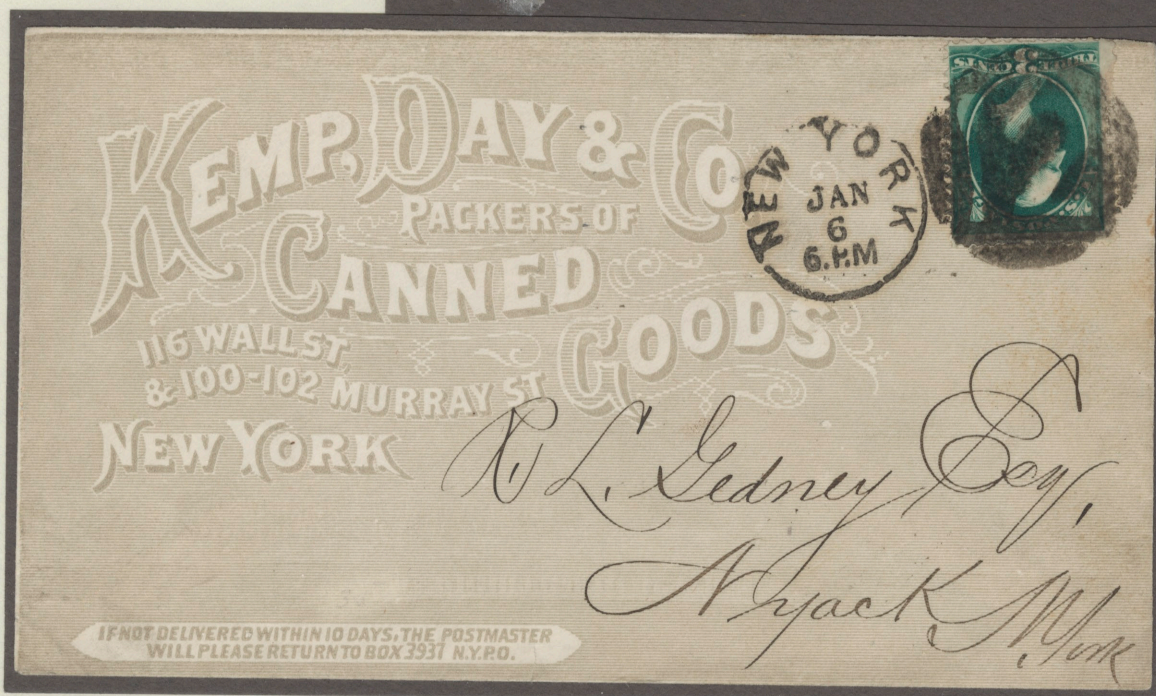 KEMP, DAY & CO
PACKERS OF
CANNED
GOODS
116 WALL ST
& 100-102 MURRAY ST
NEW YORK
NEW YORK
JAN
6
6.P.M
R L. Gedney Esq,
Nyack, N York
IF NOT DELIVERED WITHIN 10 DAYS, THE POSTMASTER
WILL PLEASE RETURN TO BOX 3937 N.Y.P.O.